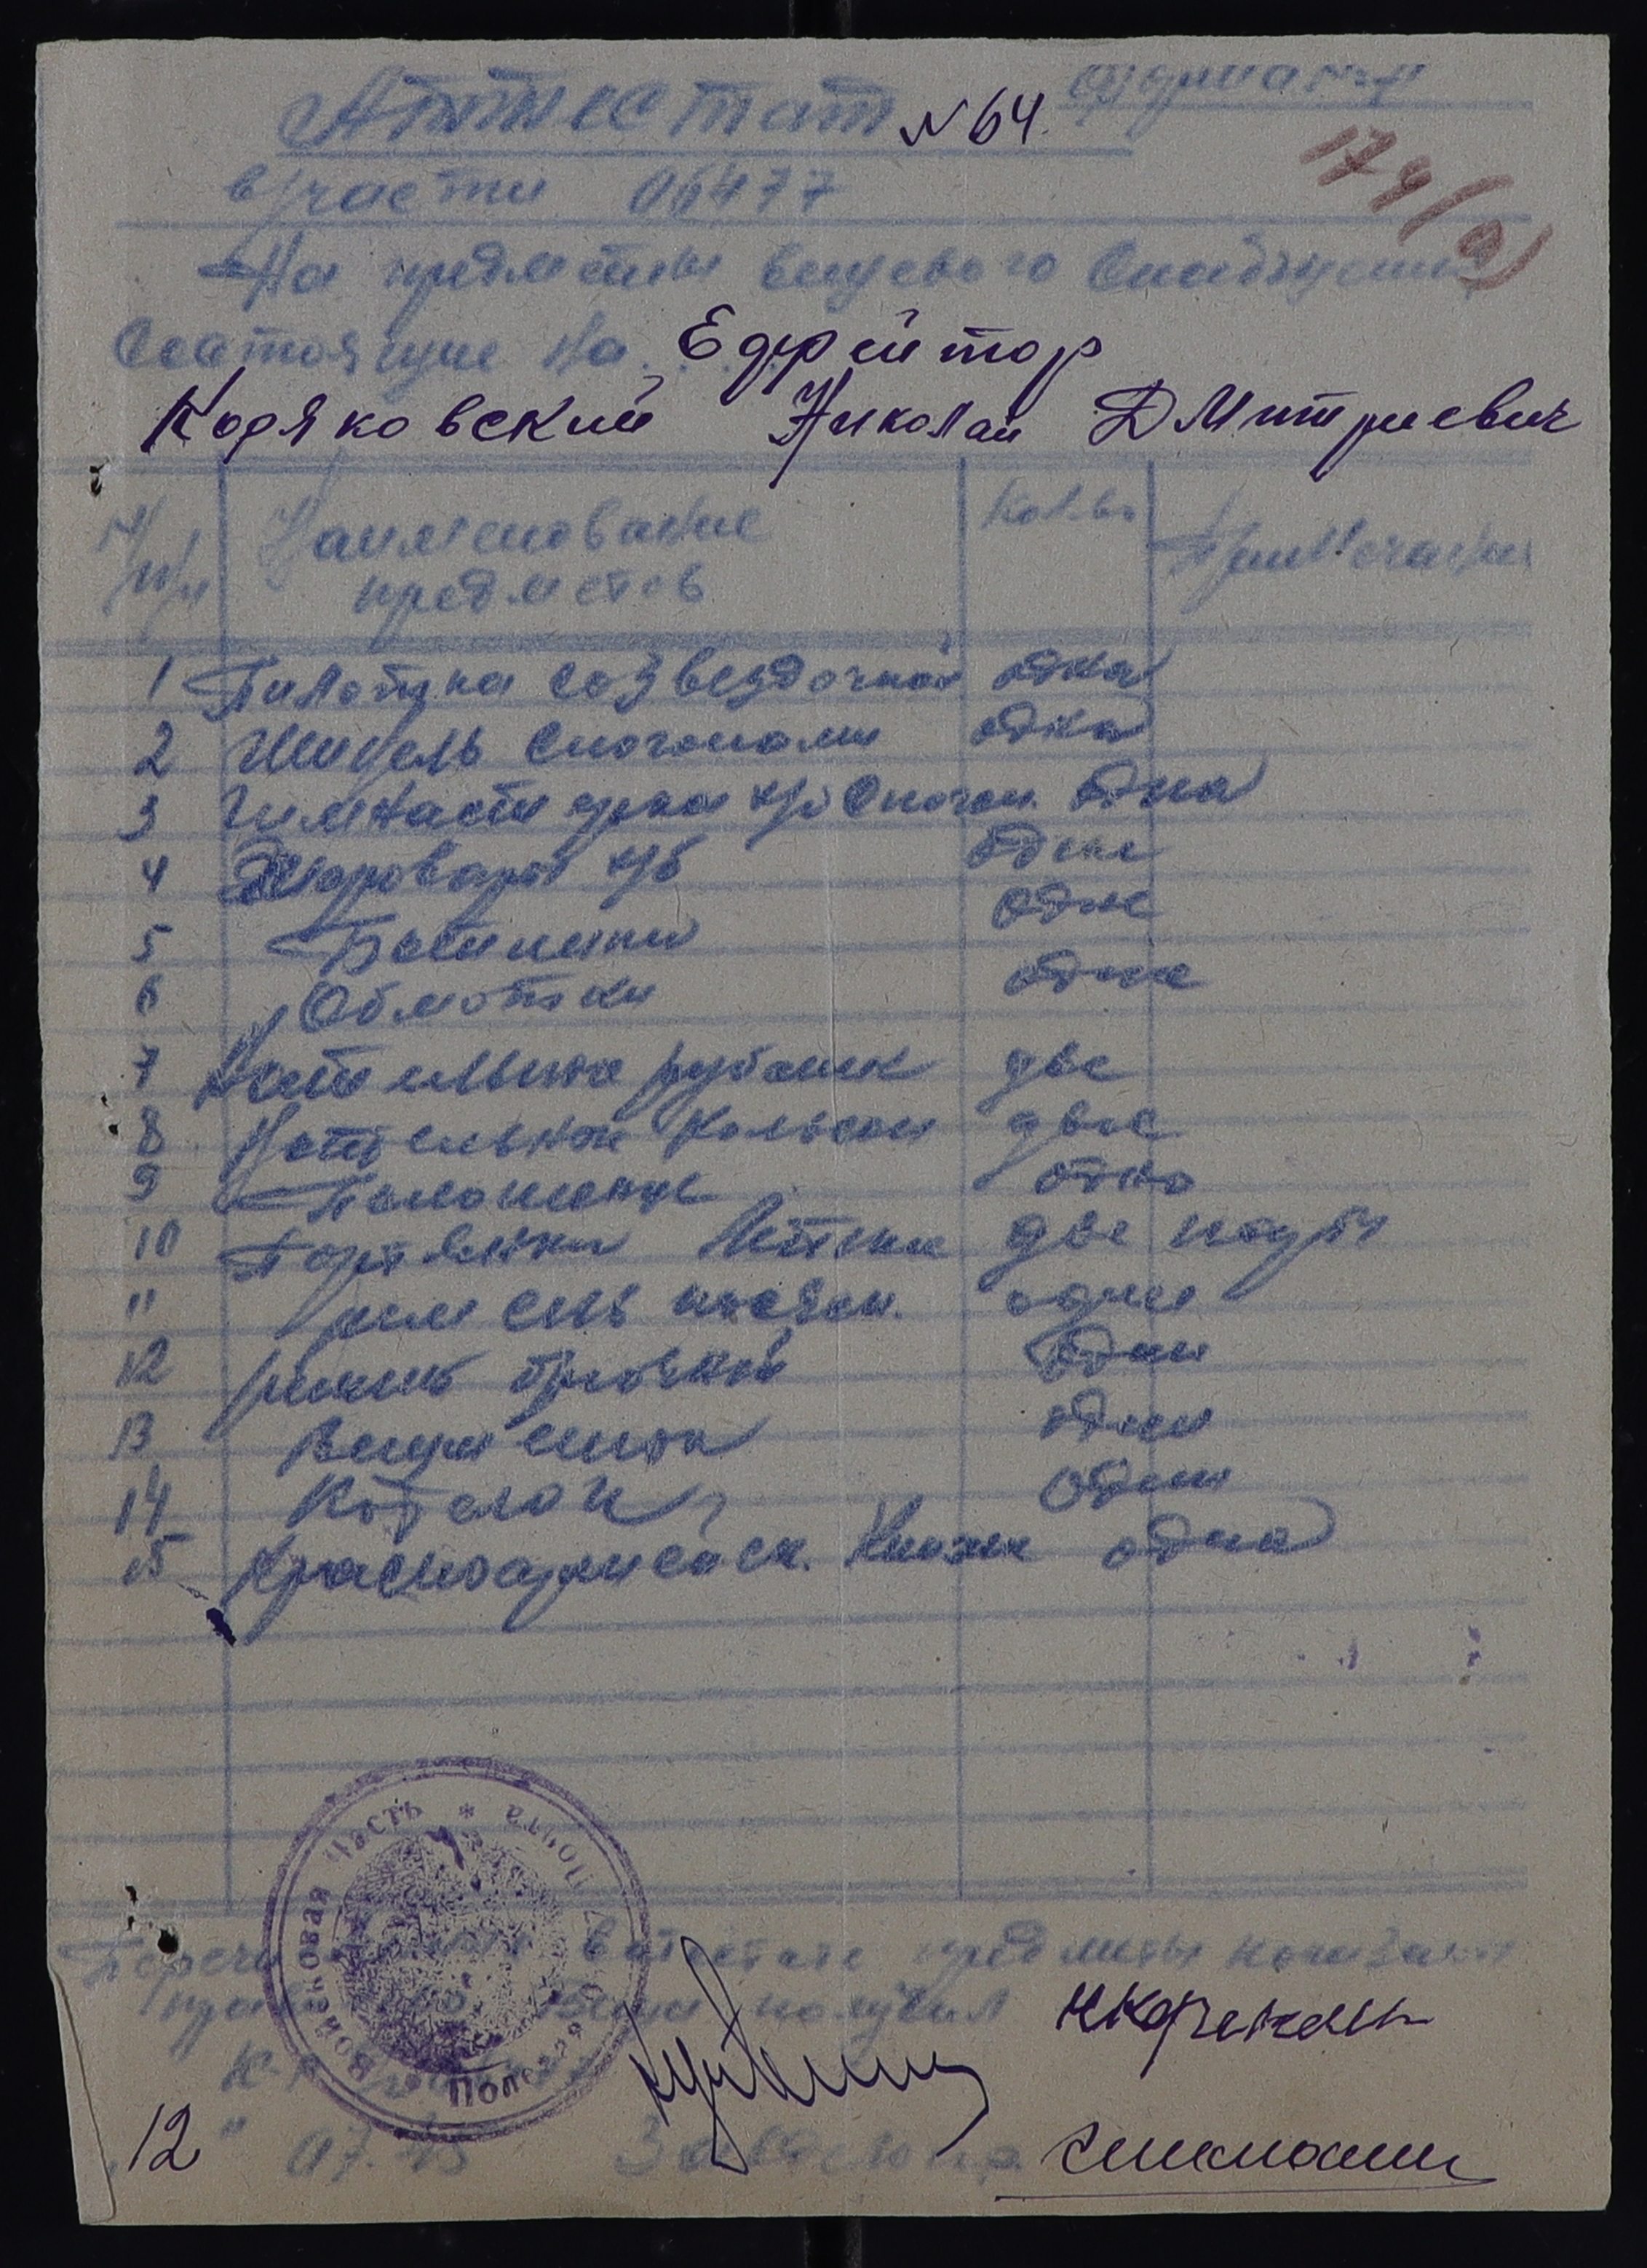 Аттестат №64.
174(9)
в/части 06477
На предметы вещевого
Состоящие на Ефрейтор
Кодяковский Николай Дмитриевич
N п/п Наименование предметов Кол-во Примечание
1 Пилотка созвездочкой одна
2 Шинель спогонами одна
3 Гимнастерка х/б спогон. одна
4 Шаровары х/б одни
5 Ботинки одне
6 Обмотки одне
7 Нательные рубашк две
8 Нательные кальсон двое
9 Полотенце одно
10 Портянки Летние две пары
11 ремень поясн. один
12 ремень брючной один
13 Вещмешок один
14 Котелок один
15 Красноармейск. Книжк одна
в атестате предметы
получил
12 " 07. 45
Войсковая Часть * Полевая Почта